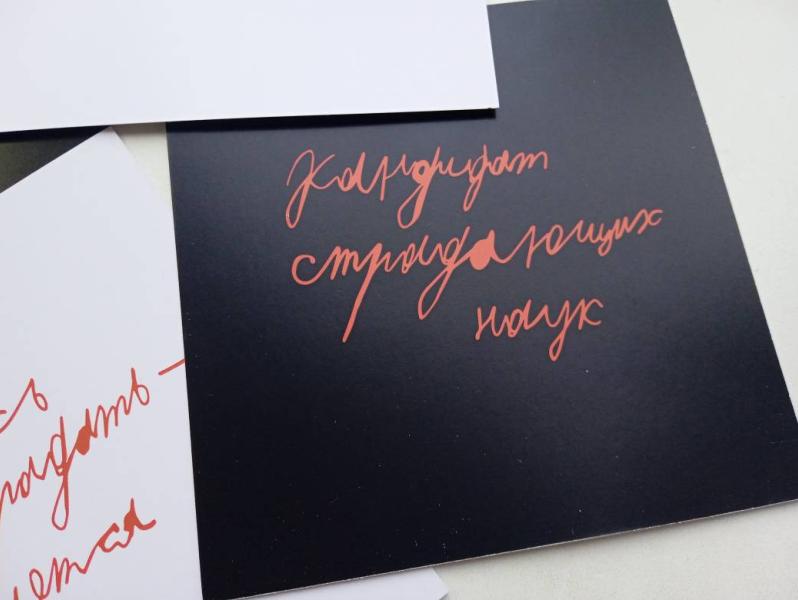 Кандидат
страдающих
наук
сь
радать -
ется